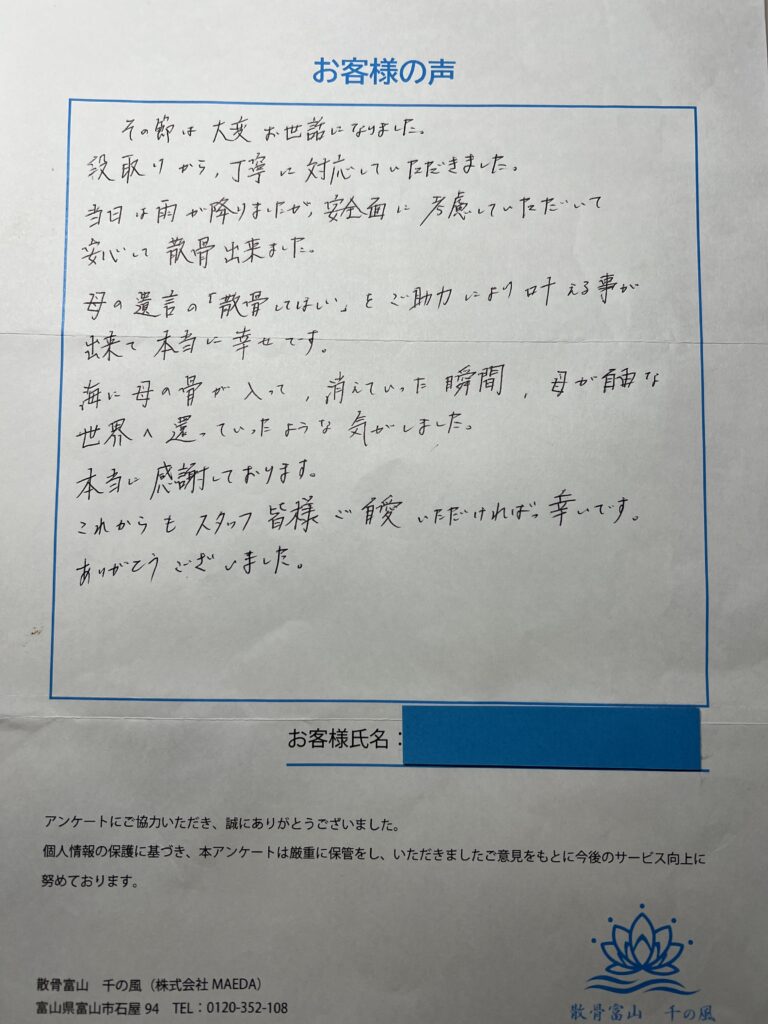 お客様の声
その節は大変お世話になりました。
段取りから、丁寧に対応していただきました。
当日は雨が降りましたが、安全面に考慮していただいて
安心して散骨出来ました。
母の遺言の「散骨してほしい」をご助力により叶える事が
出来て本当に幸せです。
海に母の骨が入って、消えていった瞬間、母が自由な
世界へ還っていったような気がしました。
本当に感謝しております。
これからもスタッフ皆様ご自愛いただければ幸いです。
ありがとうございました。
お客様氏名：
アンケートにご協力いただき、誠にありがとうございました。
個人情報の保護に基づき、本アンケートは厳重に保管をし、いただきましたご意見をもとに今後のサービス向上に
努めております。
散骨富山　千の風（株式会社 MAEDA）
富山県富山市石屋 94　TEL：0120-352-108
散骨富山　千の風